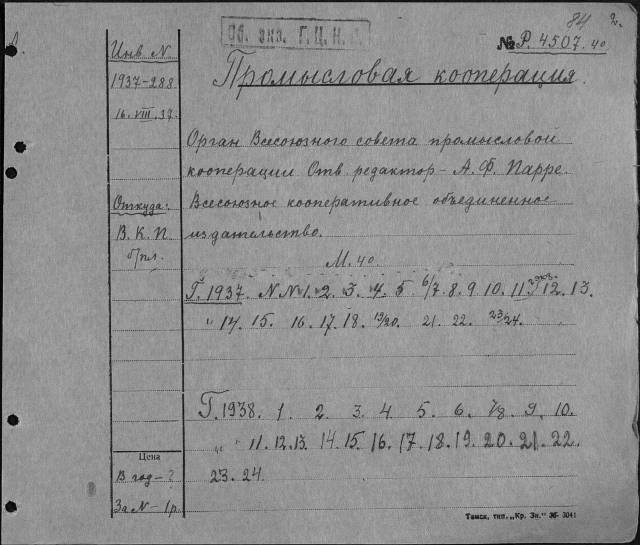 84 2.
Об. экз. Г.Ц.К.П.
№ Р. 4507. 40
Инв. N
Промысловая кооперация.
1937-288
16. VIII. 37.
Орган Всесоюзного совета промысловой
кооперации Отв. редактор - А. Ф. Парре.
Откуда:
Всесоюзное кооперативное объединенное
В. К. П.
издательство.
бпл.
М. 40
Г. 1937. N N 1. 2. 3. 4. 5 6/7. 8. 9. 10. 11 2 экз. 12. 13.
" 14. 15. 16. 17. 18. 19/20. 21. 22. 23/24.
Г. 1938. 1. 2. 3. 4. 5. 6. 7/8. 9. 10.
" " 11. 12. 13. 14. 15. 16. 17. 18. 19. 20. 21. 22.
Цена
В год - ?
23. 24.
За N - 1 р.
Томск, тип. „Кр. Зн." 36- 3041